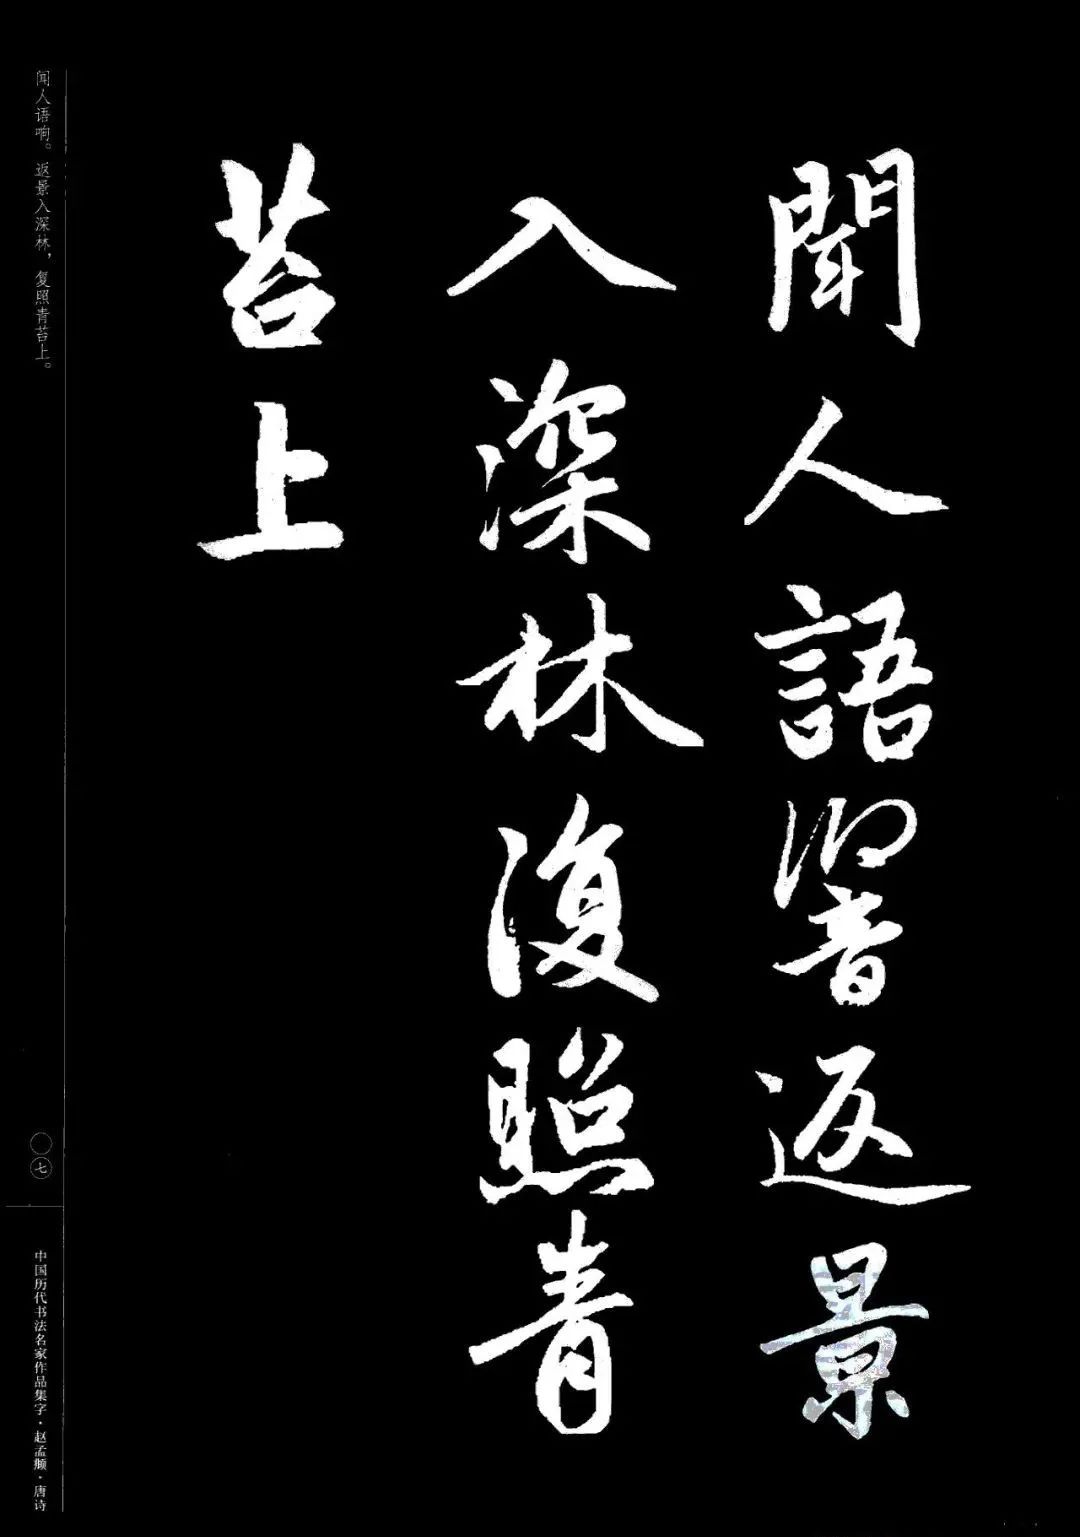 聞人語響返景
入深林復照青
苔上
闻人语响。返景入深林，复照青苔上。
〇七
中国历代书法名家作品集字·赵孟頫·唐诗